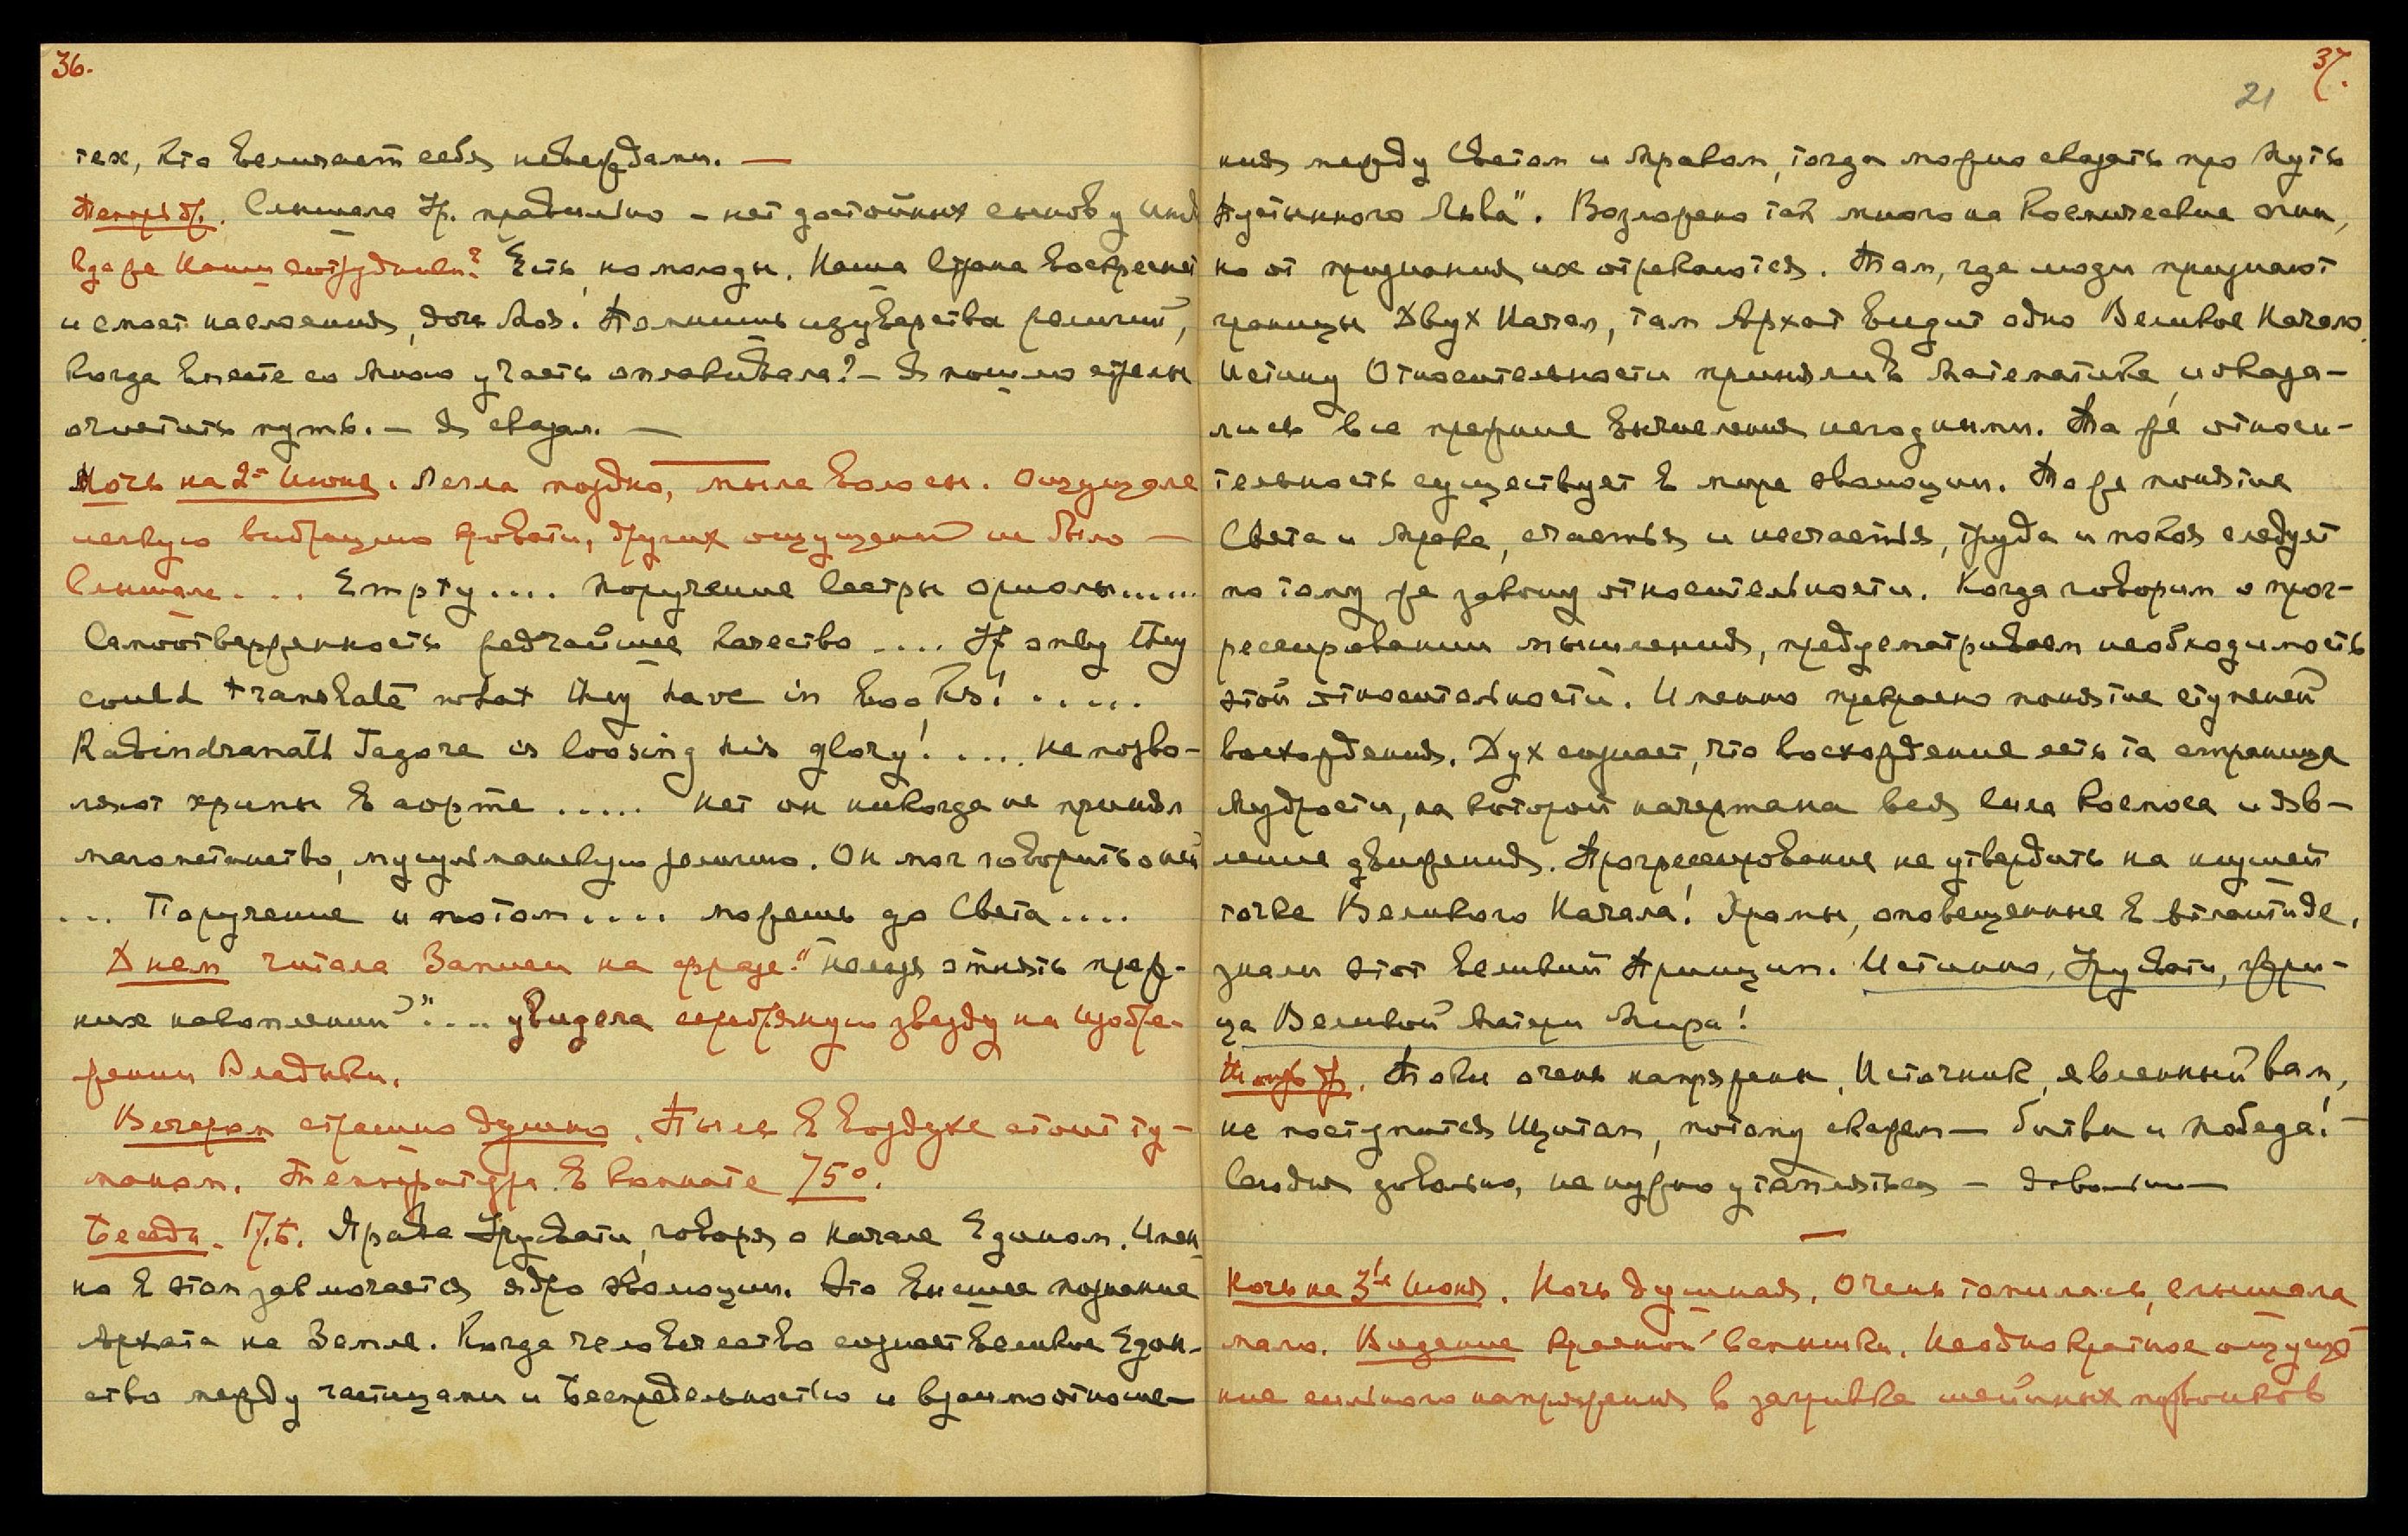 36.
тех, кто величает себя невеждами. —
Слышала Ур. правильно – нет достойных сынов у
Где же Наши сотрудники? Есть, но молоды. Наша Страна воскреснет
и смоет наслоения, дочь Моя. Помнишь изуверства религий,
когда вместе со Мною участь оплакивала? – Я пошлю стрелы
очистить путь. – Я сказал. —
Ночь на 2-е Июня. Легла поздно, мыла волосы. Ощущала
легкую вибрацию кровати, других ощущений не было –
Слышала . . . Empty . . . . Поручение Сестры Ориолы . . . . .
Самоотверженность редчайшее качество . . . . If only they
could translate what they have in books! . . . . .
Rabindranath Tagore is loosing his glory! . . . . Не позво-
ляют хрипы в аорте . . . . . Нет он никогда не принял
магометанство, мусульманскую религию. Он мог говорить о ней
. . . Поручение и потом . . . . можешь до Света . . . .
Днем читала Записи на фразе "нельзя отнять преж-
них накоплений" . . . . увидела серебряную звезду на изобра-
жении Владыки.
Вечером страшно душно. Пыль в воздухе стоит ту-
маном. Температура в комнате 75°.
Беседа. Права Урусвати, говоря о Начале Едином. Имен-
но в этом заключается ядро эволюции. Это высшее познание
Архата на Земле. Когда человечество сознает великое Един-
ство между частицами и Беспредельностью и взаимоотноше-
37.
21
ния между Светом и Мраком, тогда можно сказать про Путь
Пустынного Льва". Возложено так много на Космические огни,
но от признания их отрекаются. Там, где люди признают
границы Двух Начал, там Архат видит одно Великое Начало.
Истину Относительности приняли в Математике, и оказа-
лись все прежние вычисления негодными. Та же относи-
тельность существует в мире эволюции. То же понятие
Света и Мрака, счастья и несчастья, труда и покоя следует
по тому же закону относительности. Когда говорим о прог-
рессировании мышления, предусматриваем необходимость
этой относительности. Именно прекрасно понятие ступеней
восхождения. Дух сознает, что восхождение есть та страница
Мудрости, на которой начертана вся сила Космоса и яв-
ление движения. Прогрессирование не утвердить на низшей
точке Великого Начала! Храмы, оповещенные в Атлантиде,
знали этот великий Принцип. Истинно, Урусвати, жри-
ца Великой Матери Мира!
Токи очень напряжены, Источник, явленный вам,
не поступится Щитам, потому скажем — битва и победа! –
Сегодня довольно, не нужно утомляться – довольно —
Ночь на 3-ье Июня. Ночь душная. Очень томилась, слышала
мало. Видение красной вспышки. Неоднократное ощуще-
ние сильного напряжения в загривке шейных позвонков